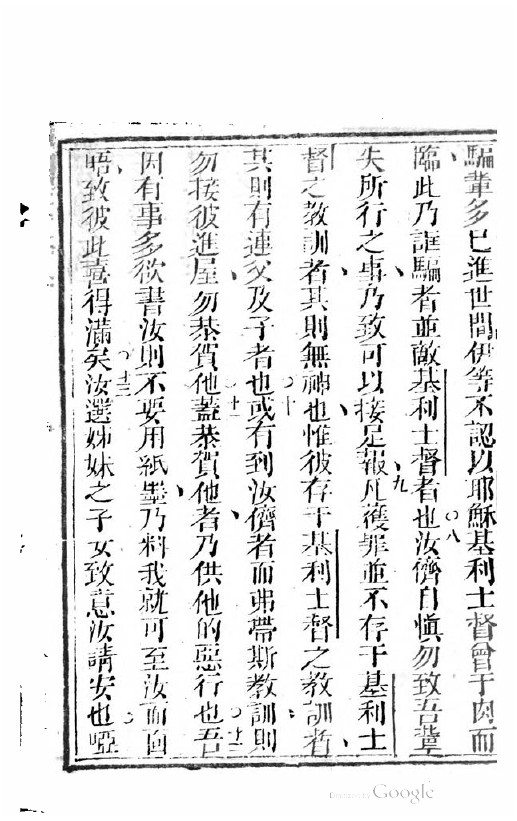 騙輩多已進世間伊等不認以耶穌基利士督曾于肉而
臨此乃誆騙者並敵基利士督者也八汝儕自慎勿致吾輩
失所行之事乃致可以接足報九凡獲罪並不存于基利士
督之教訓者其則無神也惟彼存于基利士督之教訓者
其則有連父及子者也十或有到汝儕者而弗帶斯教訓則
勿接彼進屋勿恭賀他十一蓋恭賀他者乃供他的惡行也十二吾
因有事多欲書汝則不要用紙墨乃料我就可至汝而面
晤致彼此喜得滿矣十三汝選姊妹之子女致意汝請安也啞
Digitized by Google